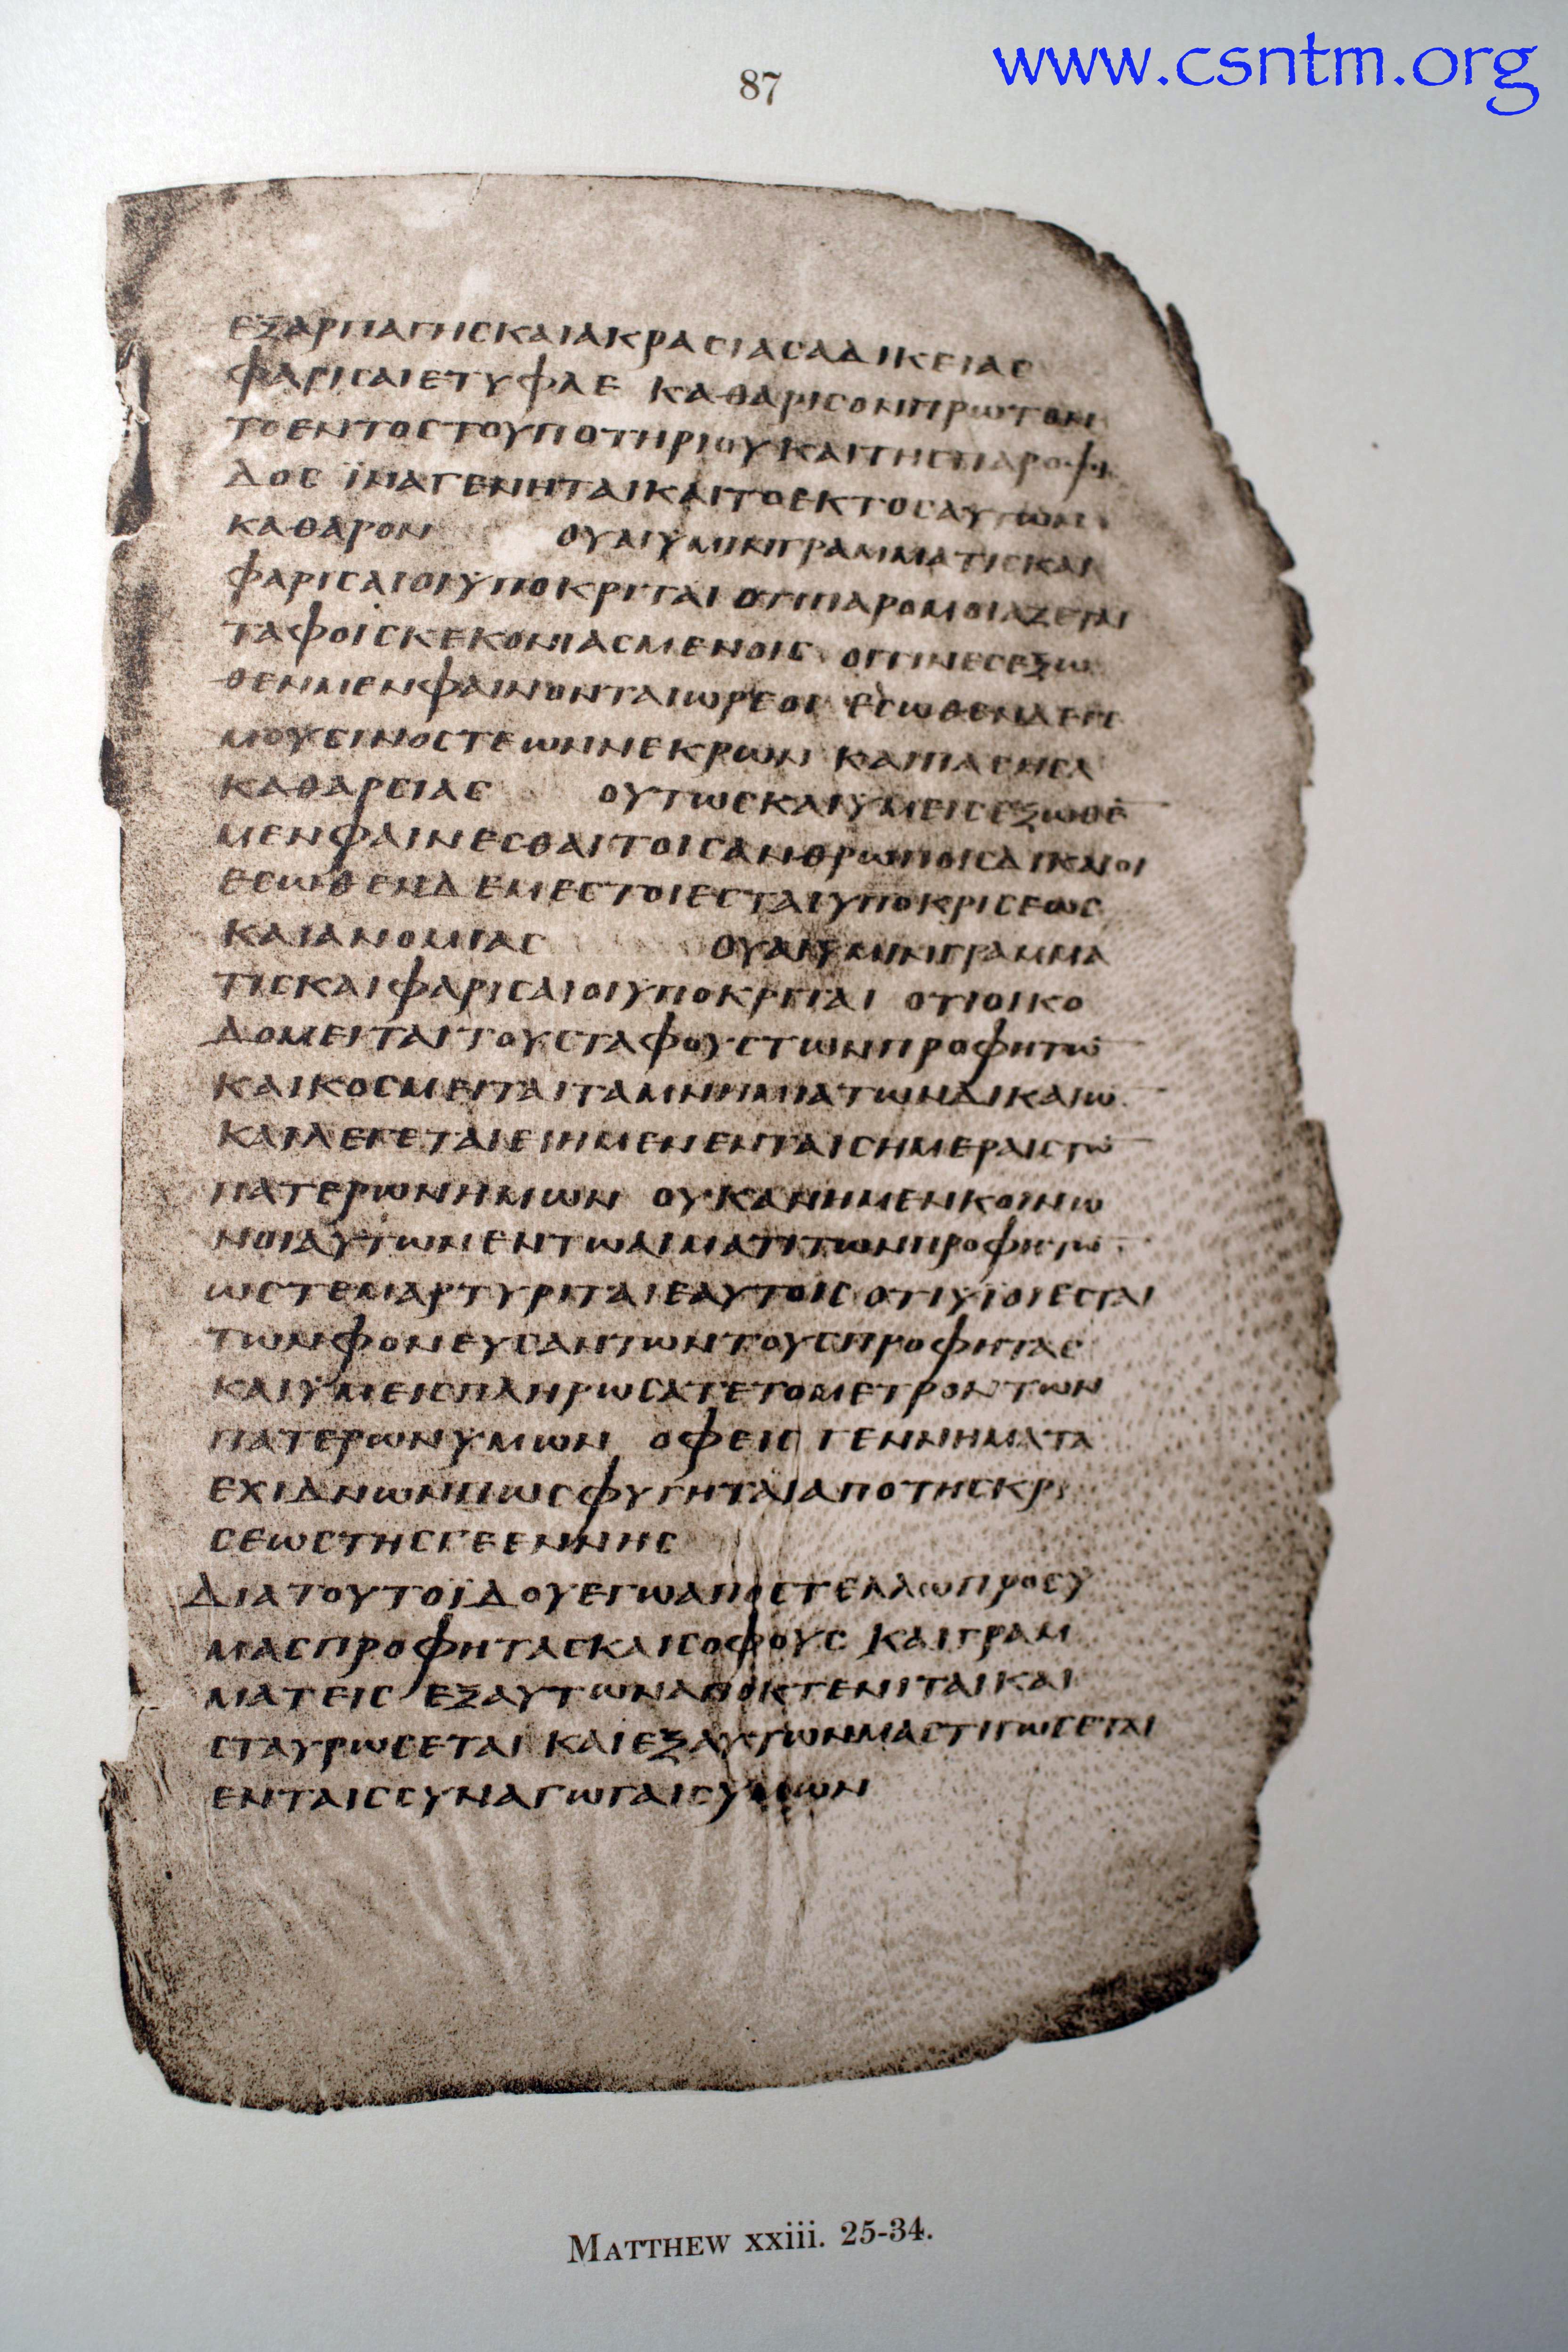 87
www.csntm.org
ΕΞΑΡΠΑΓΗΣΚΑΙΑΚΡΑΣΙΑΣΑΔΙΚΕΙΑΣ
ΦΑΡΙΣΑΙΕΤΥΦΛΕ ΚΑΘΑΡΙΣΟΝΠΡΩΤΟΝ
ΤΟΕΝΤΟΣΤΟΥΠΟΤΗΡΙΟΥΚΑΙΤΗΣΠΑΡΟΨΙ
ΔΟΣ ΪΝΑΓΕΝΗΤΑΙΚΑΙΤΟΕΚΤΟΣΑΥΤΩΝ
ΚΑΘΑΡΟΝ ΟΥΑΙΥΜΙΝΓΡΑΜΜΑΤΙΣΚΑΙ
ΦΑΡΙΣΑΙΟΙΥΠΟΚΡΙΤΑΙ ΟΤΙΠΑΡΟΜΟΙΑΖΕΤΑΙ
ΤΑΦΟΙΣΚΕΚΟΝΙΑΣΜΕΝΟΙΣ ΟΙΤΙΝΕΣΕΞΩ
ΘΕΝΜΕΝΦΑΙΝΟΝΤΑΙΩΡΕΟΙ ΕΣΩΘΕΝΔΕΓΕ
ΜΟΥΣΙΝΟΣΤΕΩΝΝΕΚΡΩΝ ΚΑΙΠΑΣΗΣΑ
ΚΑΘΑΡΣΙΑΣ ΟΥΤΩΣΚΑΙΥΜΕΙΣΕΞΩΘΕ̅
ΜΕΝΦΑΙΝΕΣΘΑΙΤΟΙΣΑΝΘΡΩΠΟΙΣΔΙΚΑΙΟΙ
ΕΣΩΘΕΝΔΕΜΕΣΤΟΙΕΣΤΑΙΥΠΟΚΡΙΣΕΩΣ
ΚΑΙΑΝΟΜΙΑΣ ΟΥΑΙΥΜΙΝΓΡΑΜΜΑ
ΤΙΣΚΑΙΦΑΡΙΣΑΙΟΙΥΠΟΚΡΙΤΑΙ ΟΤΙΟΙΚΟ
ΔΟΜΕΙΤΑΙΤΟΥΣΤΑΦΟΥΣΤΩΝΠΡΟΦΗΤΩ̅
ΚΑΙΚΟΣΜΕΙΤΑΙΤΑΜΝΗΜΙΑΤΩΝΔΙΚΑΙΩ̅
ΚΑΙΛΕΓΕΤΑΙΕΙΗΜΕΝΕΝΤΑΙΣΗΜΕΡΑΙΣΤΩ̅
ΠΑΤΕΡΩΝΗΜΩΝ ΟΥΚΑΝΗΜΕΝΚΟΙΝΩ
ΝΟΙΑΥΤΩΝΕΝΤΩΑΙΜΑΤΙΤΩΝΠΡΟΦΗΤΩ̅
ΩΣΤΕΜΑΡΤΥΡΙΤΑΙΕΑΥΤΟΙΣ ΟΤΙΥΪΟΙΕΣΤΑΙ
ΤΩΝΦΟΝΕΥΣΑΝΤΩΝΤΟΥΣΠΡΟΦΗΤΑΣ
ΚΑΙΥΜΕΙΣΠΛΗΡΩΣΑΤΕΤΟΜΕΤΡΟΝΤΩΝ
ΠΑΤΕΡΩΝΥΜΩΝ ΟΦΕΙΣ ΓΕΝΝΗΜΑΤΑ
ΕΧΙΔΝΩΝΠΩΣΦΥΓΗΤΑΙΑΠΟΤΗΣΚΡΙ
ΣΕΩΣΤΗΣΓΕΕΝΝΗΣ
ΔΙΑΤΟΥΤΟΪΔΟΥΕΓΩΑΠΟΣΤΕΛΛΩΠΡΟΣΥ
ΜΑΣΠΡΟΦΗΤΑΣΚΑΙΣΟΦΟΥΣ ΚΑΙΓΡΑΜ
ΜΑΤΕΙΣ ΕΞΑΥΤΩΝΑΠΟΚΤΕΝΙΤΑΙΚΑΙ
ΣΤΑΥΡΩΣΕΤΑΙ ΚΑΙΕΞΑΥΤΩΝΜΑΣΤΙΓΩΣΕΤΑΙ
ΕΝΤΑΙΣΣΥΝΑΓΩΓΑΙΣΥΜΩΝ
MATTHEW xxiii. 25-34.